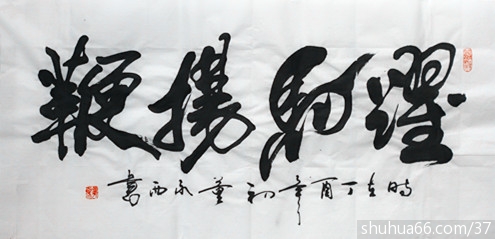 躍馬揚鞭
時在丁酉年初董永西書
shuhua66.com/37